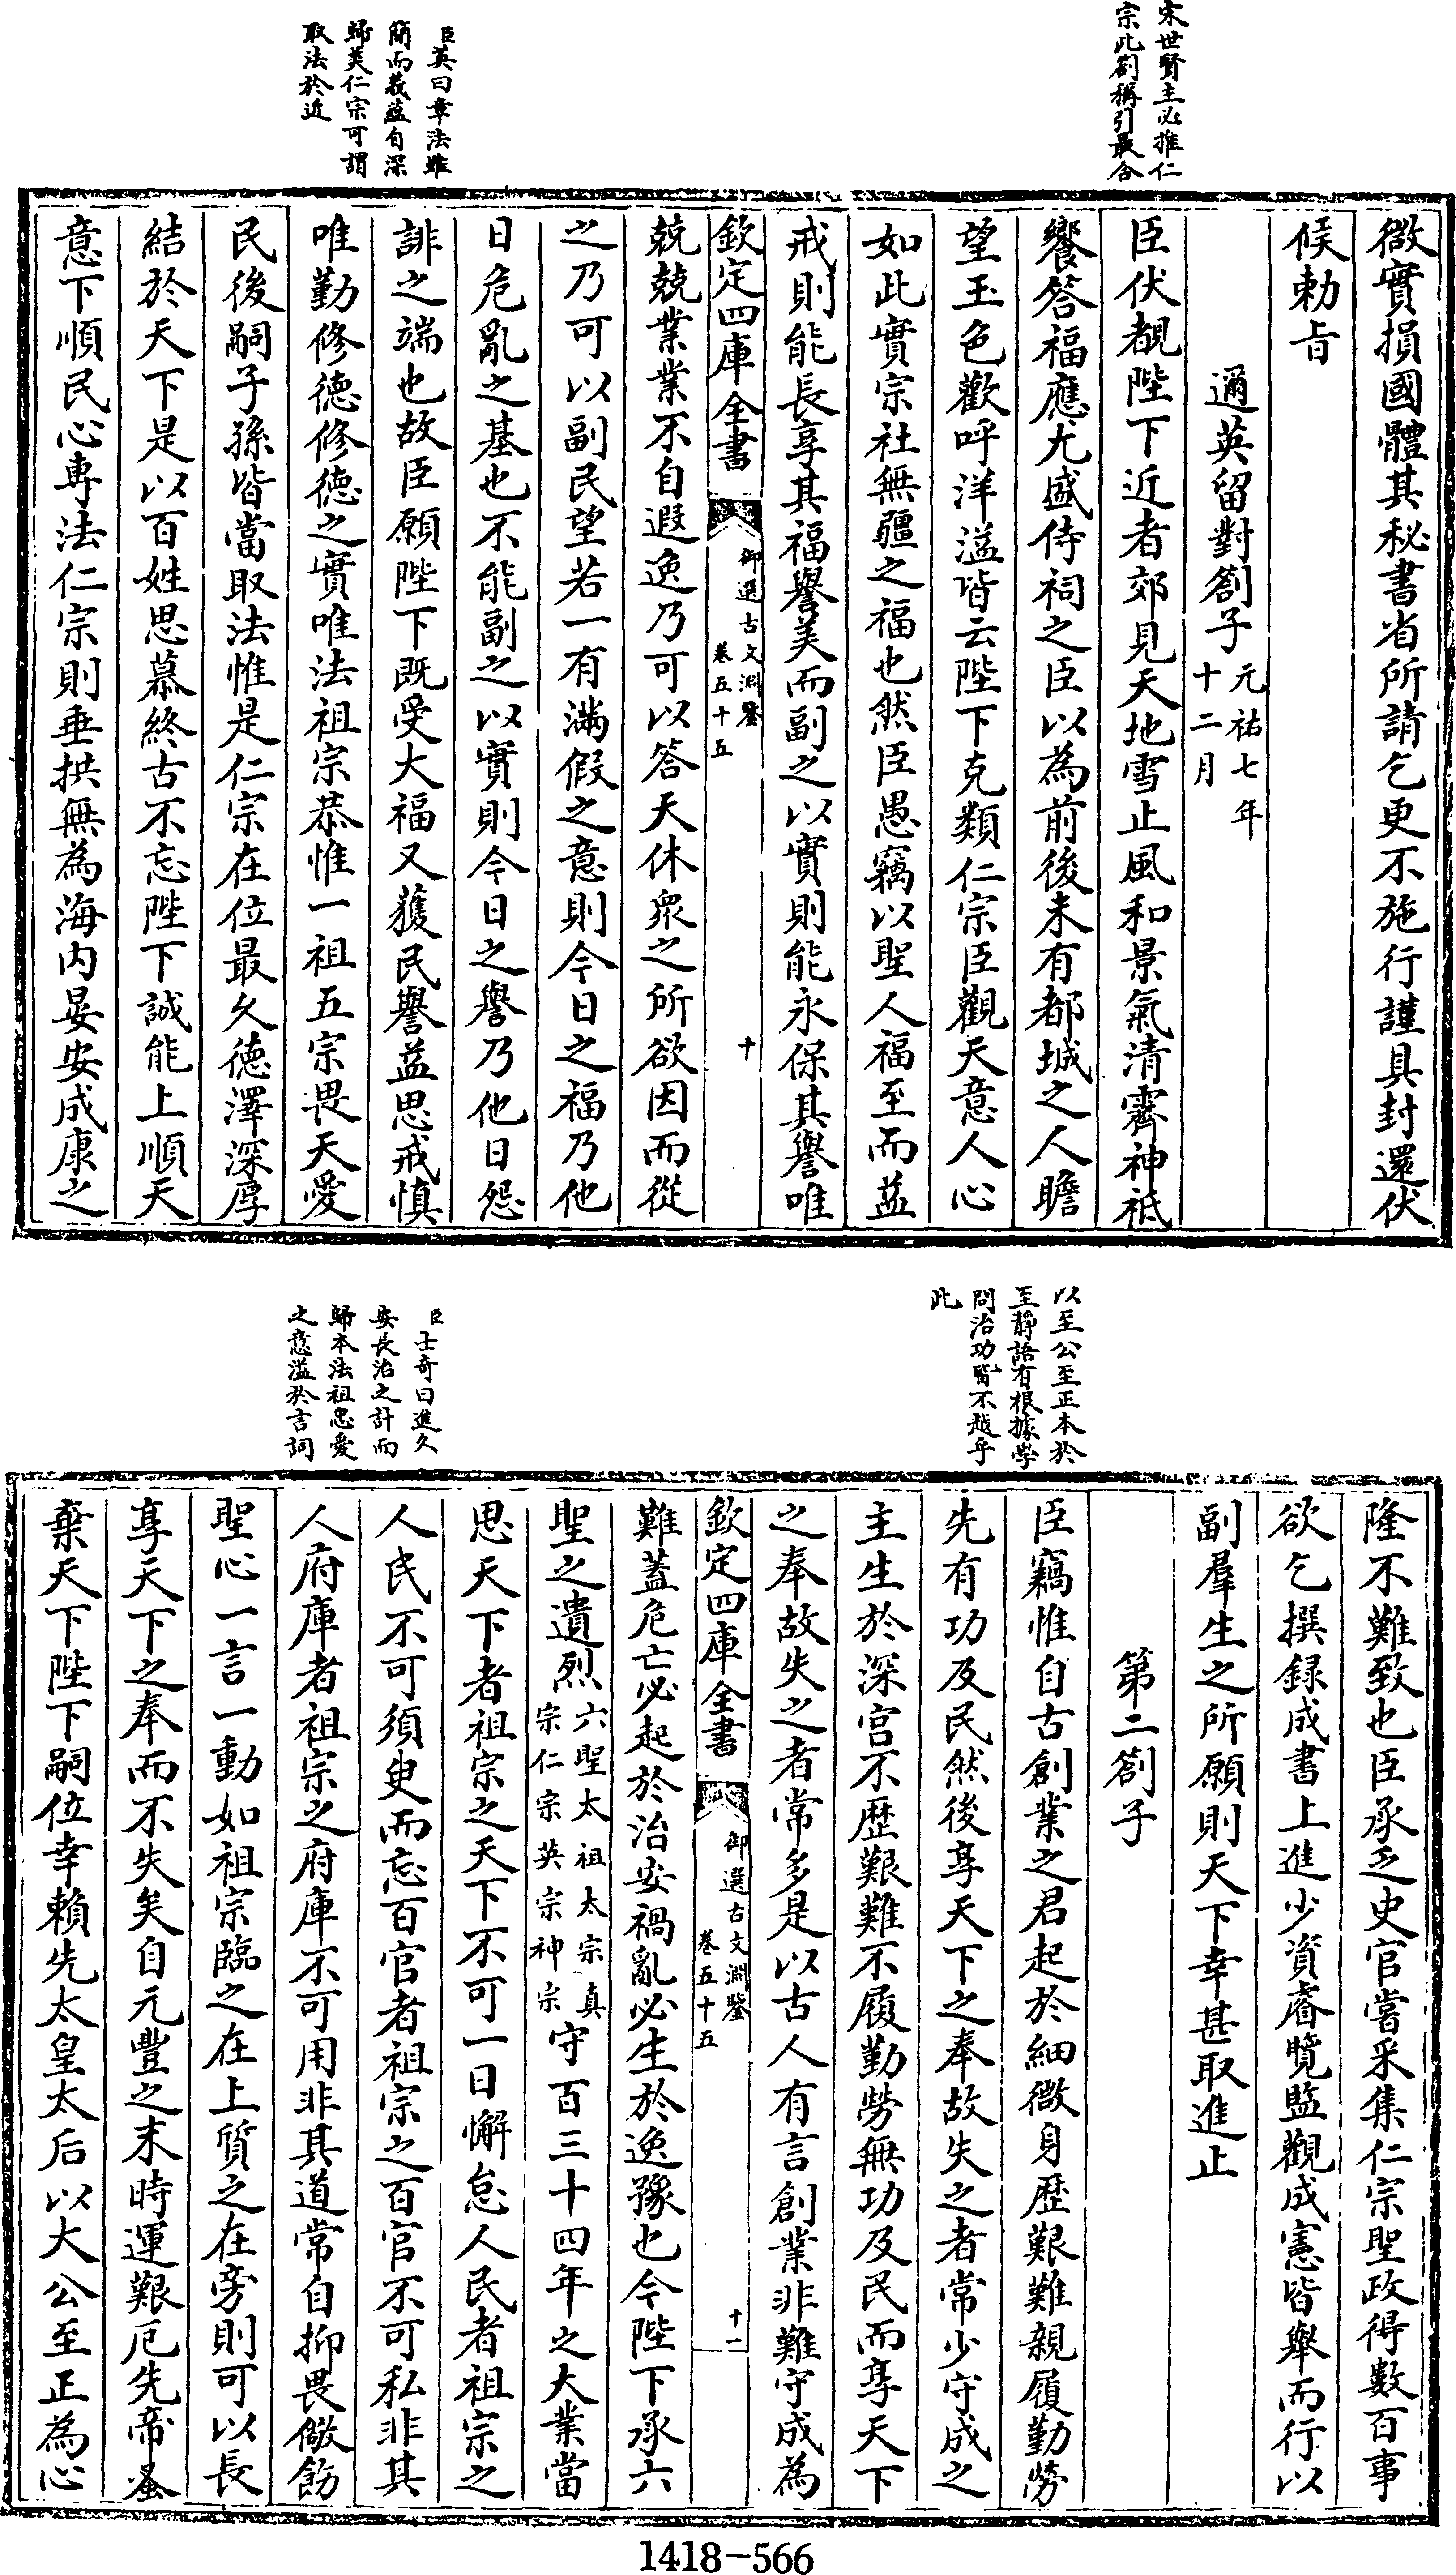 宋世賢主必推仁
宗此劄稱引最合
臣英曰章法雖
簡而義蘊自深
歸美仁宗可謂
取法於近
微實損國體其秘書省所請乞更不施行謹具封還伏
候勅旨
邇英留對劄子元祐七年
十二月
臣伏覩陛下近者郊見天地雪止風和景氣清霽神祗
饗答福應尤盛侍祠之臣以為前後未有都城之人瞻
望玉色歡呼洋溢皆云陛下克類仁宗臣觀天意人心
如此實宗社無疆之福也然臣愚竊以聖人福至而益
戒則能長享其福譽美而副之以實則能永保其譽唯
欽定四庫全書
御選古文淵鑒
卷五十五
十
兢兢業業不自遐逸乃可以答天休衆之所欲因而從
之乃可以副民望若一有滿假之意則今日之福乃他
日危亂之基也不能副之以實則今日之譽乃他日怨
誹之端也故臣願陛下既受大福又獲民譽益思戒慎
唯勤修德修德之實唯法祖宗恭惟一祖五宗畏天愛
民後嗣子孫皆當取法惟是仁宗在位最久德澤深厚
結於天下是以百姓思慕終古不忘陛下誠能上順天
意下順民心專法仁宗則垂拱無為海內晏安成康之
以至公至正本於
至靜語有根據學
問治功皆不越乎
此
臣士奇曰進久
安長治之計而
歸本法祖忠愛
之意溢於言詞
隆不難致也臣承乏史官嘗采集仁宗聖政得數百事
欲乞撰録成書上進少資睿覽監觀成憲皆舉而行以
副羣生之所願則天下幸甚取進止
第二劄子
臣竊惟自古創業之君起於細微身歷艱難親履勤勞
先有功及民然後享天下之奉故失之者常少守成之
主生於深宫不歷艱難不履勤勞無功及民而享天下
之奉故失之者常多是以古人有言創業非難守成為
欽定四庫全書
御選古文淵鑒
卷五十五
十一
難蓋危亡必起於治安禍亂必生於逸豫也今陛下承六
聖之遺烈六聖太祖太宗真
宗仁宗英宗神宗守百三十四年之大業當
思天下者祖宗之天下不可一日懈怠人民者祖宗之
人民不可須臾而忘百官者祖宗之百官不可私非其
人府庫者祖宗之府庫不可用非其道常自抑畏儆飭
聖心一言一動如祖宗臨之在上質之在旁則可以長
享天下之奉而不失矣自元豐之末時運艱厄先帝蚤
棄天下陛下嗣位幸賴先太皇太后以大公至正為心
1418-566